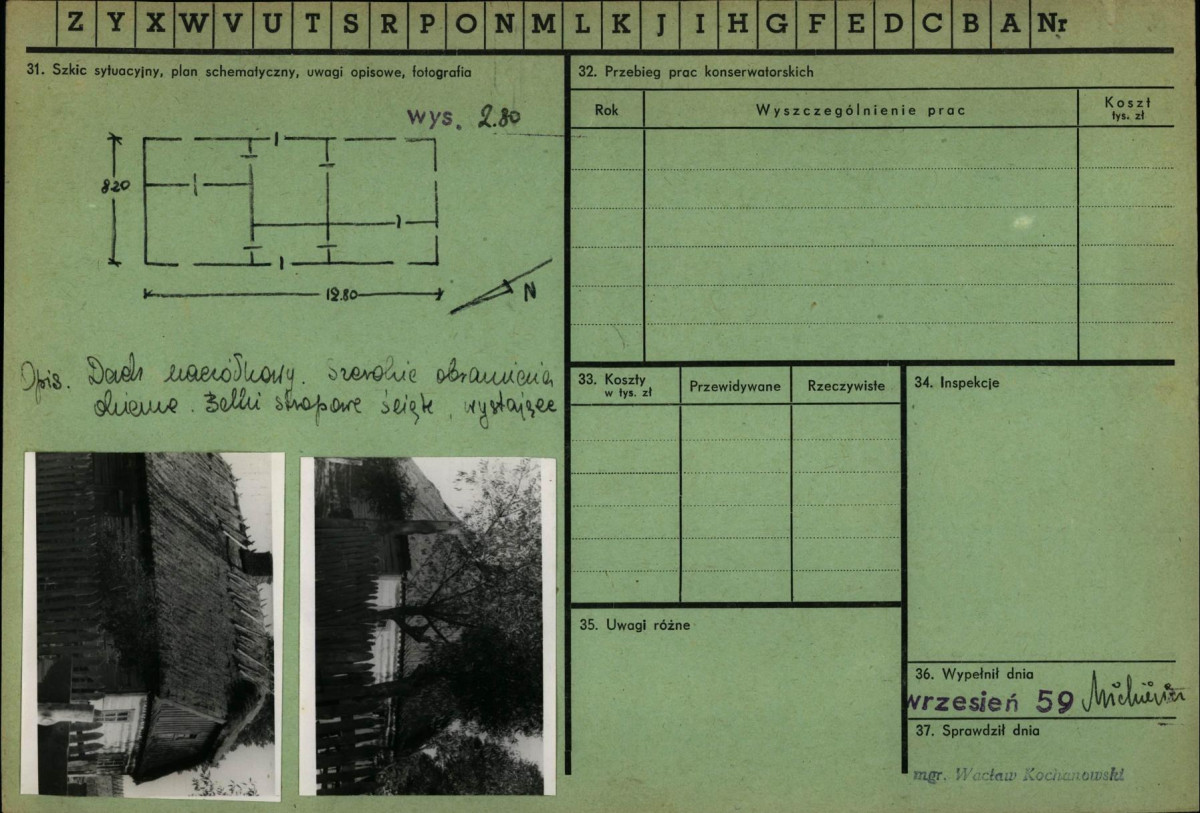 Z Y X W V U T S R P O N M L K J I H G F E D C B A Nr
31. Szkic sytuacyjny, plan schematyczny, uwagi opisowe, fotografia
wys. 2.80
820
12.80
N
Opis. Dach naczółkowy. Szerokie obramienia
okienne. Belki stropowe ścięte, wystające
32. Przebieg prac konserwatorskich
Rok
Wyszczególnienie prac
Koszt
tys. zł
33. Koszty
w tys. zł
Przewidywane
Rzeczywiste
34. Inspekcje
35. Uwagi różne
36. Wypełnił dnia
wrzesień 59
37. Sprawdził dnia
mgr. Wacław Kochanowski